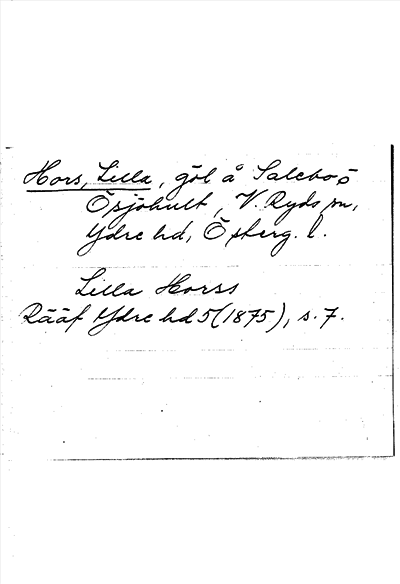 Hors, Lilla, göl å Salebo o
Ösjöhult, V. Ryds sn,
Ydre hd, Österg. l.
Lilla Horss
Rääf Ydre hd 5 (1875), s. 7.